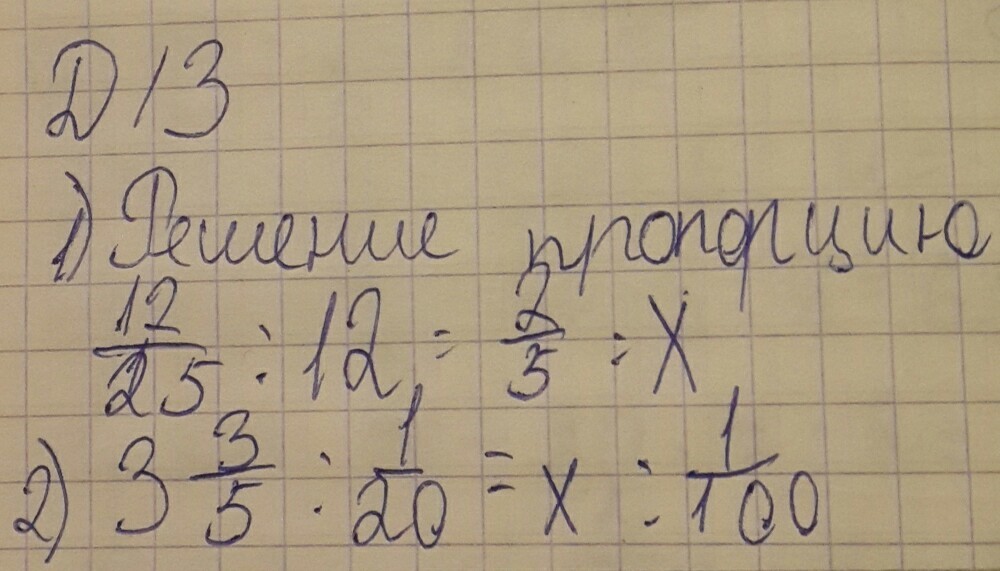 Д/З
1) Решение пропорцию
12/25 : 12 = 2/5 : X
2) 3 3/5 : 1/20 = x : 1/100